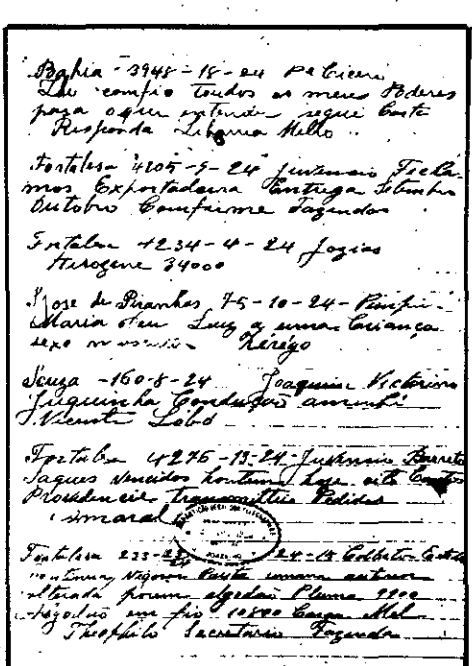 Bahia - 3948 - 18 - 24 Pe Cicero
Lhe confio toudos os meus Poderes
para o que entender segui Carta
Responda Libania Mello
Fortalesa 4205 - 9 - 24 Juvencio Fecha-
mos Exportadoura Entrega Setembro
Outobro Comfairme Fazendas
Fortalesa 4234 - 4 - 24 Jozias
Kerozene 34000
S Jose de Piranhas 75 - 10 - 24 -
Maria deu Luz a uma Criança
sexo masculino
Souza - 160 - 8 - 24 Joaquim Victorino
Juquinha Condução amenhã
Vicente Lôbo
Fortalesa 4276 - 13 - 24 - Juvencio Barreto
Saques vencidos hontem hoje oito Contos
Providencie transmittir Pedidos
Amaral
Fortalesa 24 - 18
semana anterior
alterada porem algodão Pluma
Algodão em fio 10800 Mel
Theophilo Secretario Fazenda